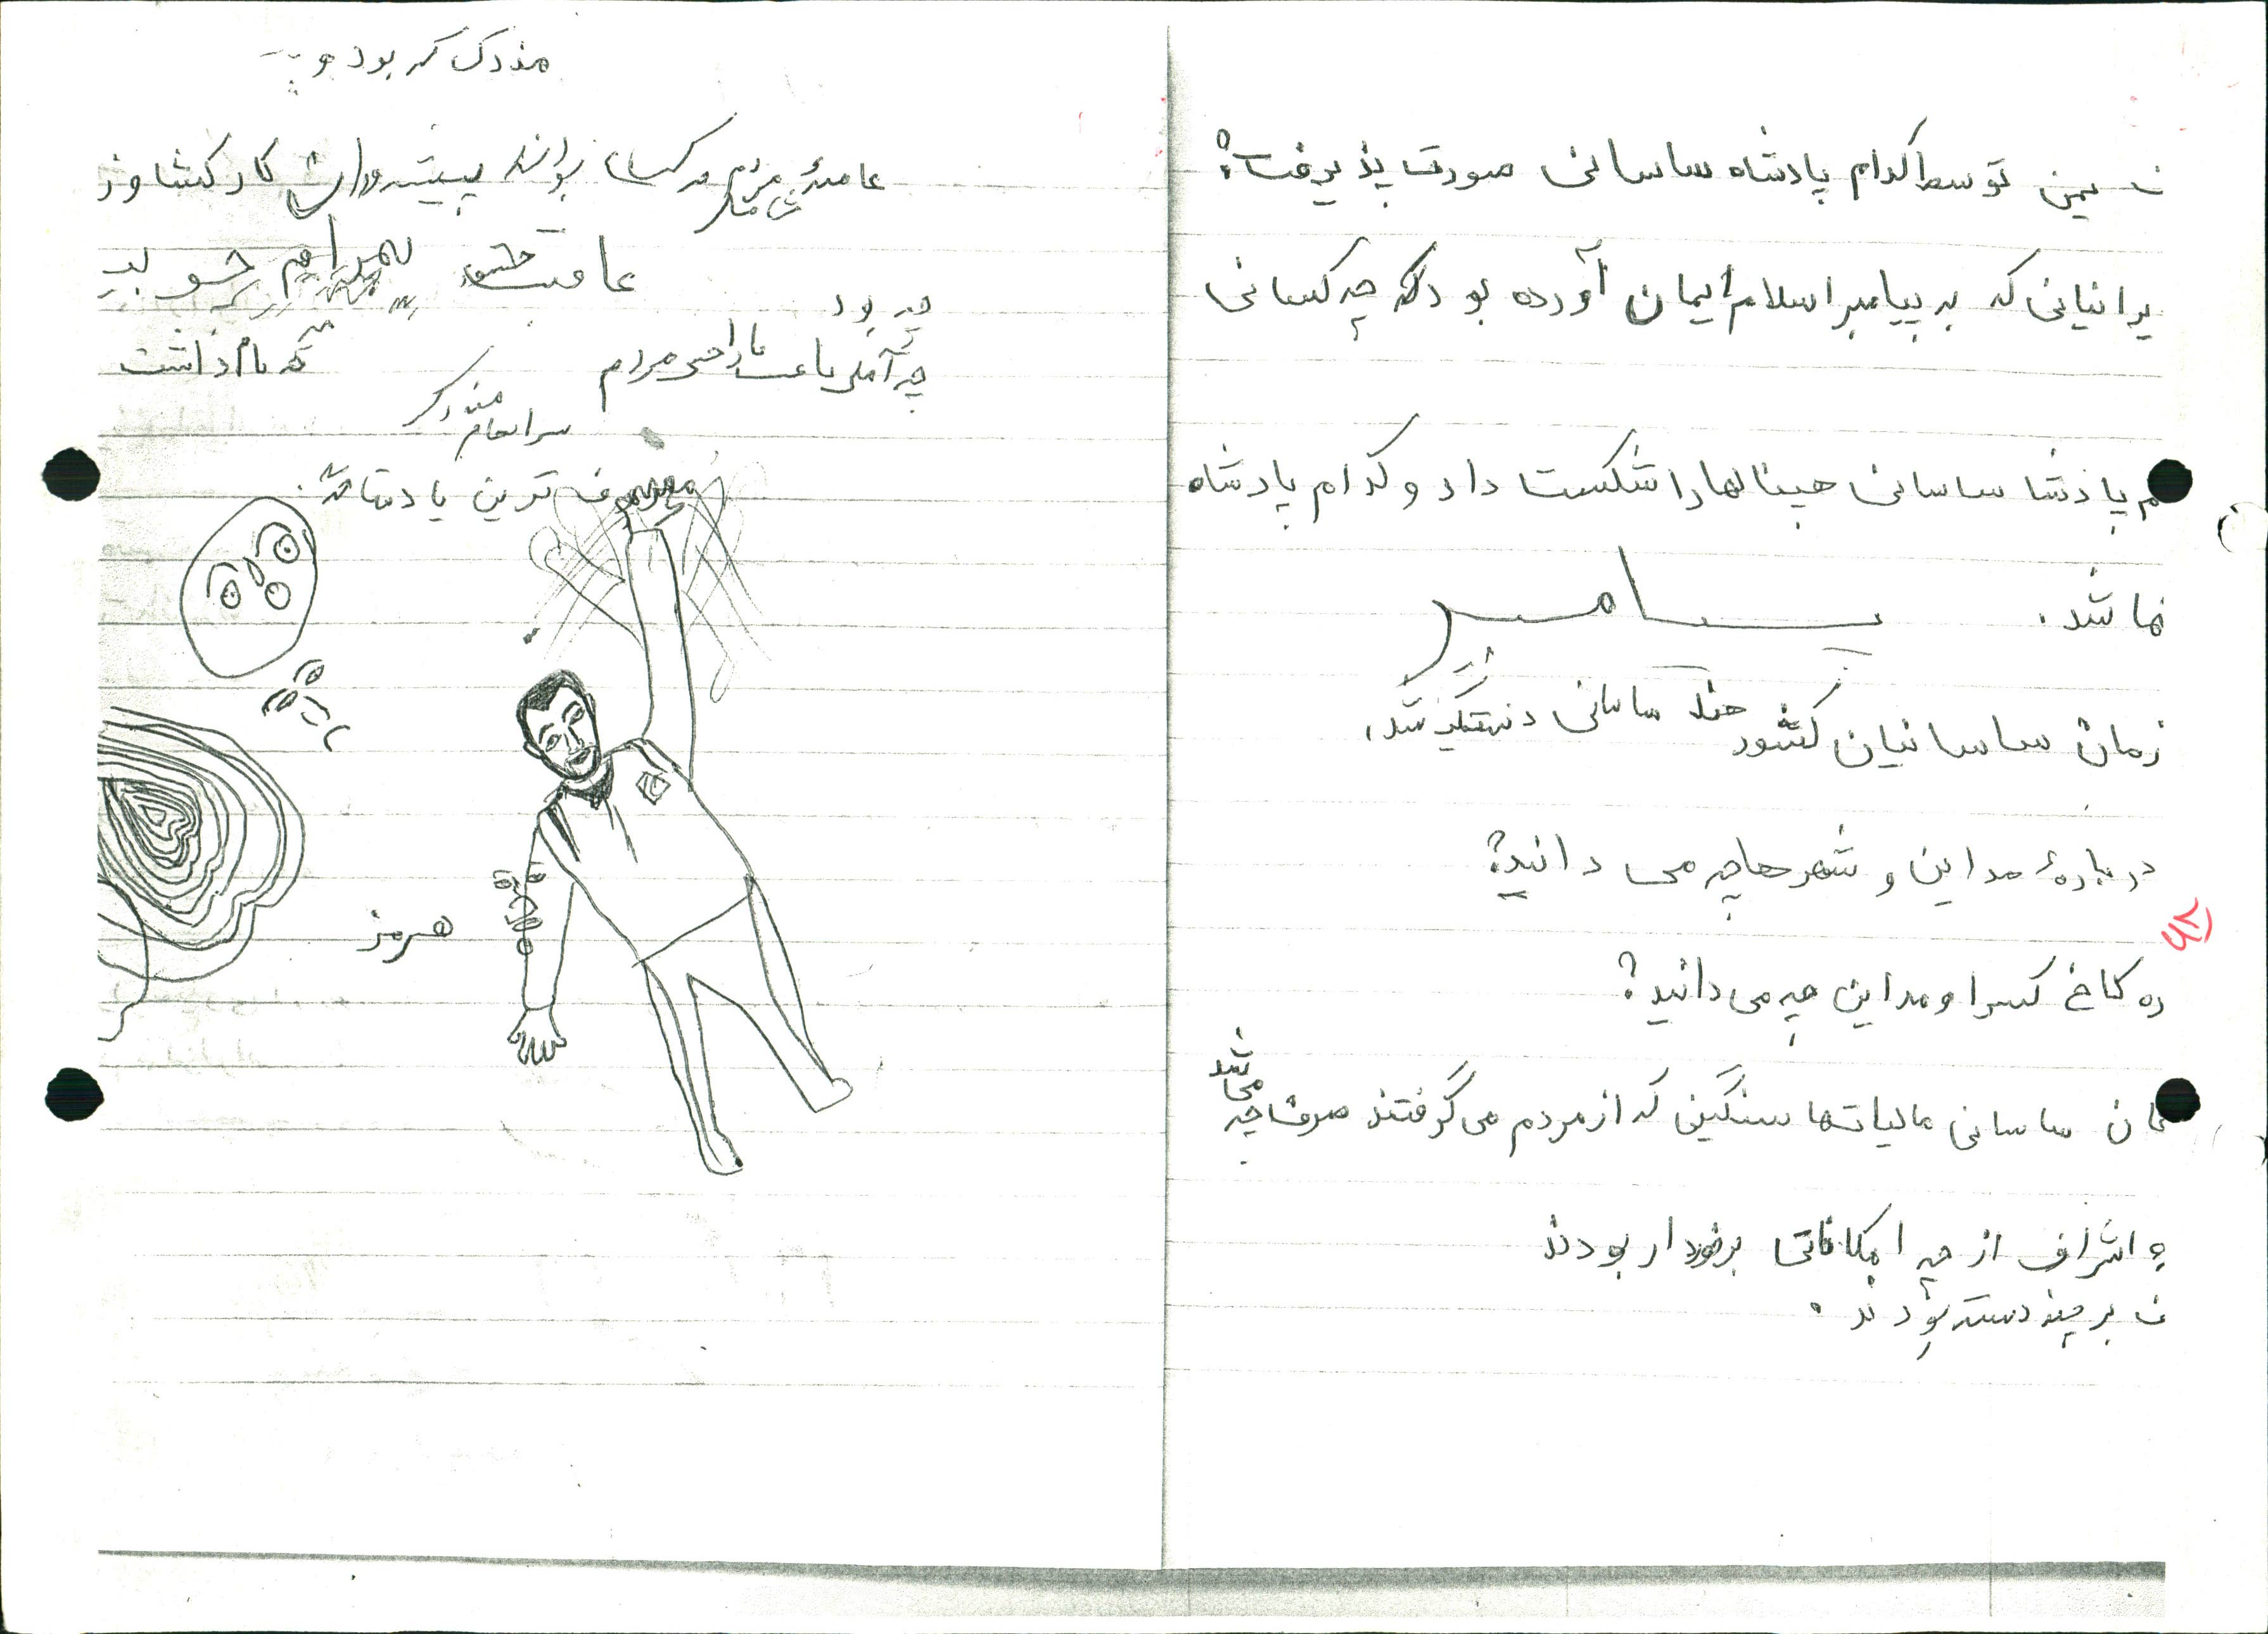 ت یمن توسط کدام پادشاه ساسانی صورت پذیرفت؟
یرانیانی که به پیامبر اسلام ایمان آورده بود که چه کسانی
م پادشا ساسانی هیتالها را شکست داد و کدام پادشاه
نما شد.
زمان ساسانیان کشور ساسانی دستگیر شد.
درباره‌ٔ مداین و شهرها چه می دانید؟
ره کاخ کسرا و مداین چه می‌دانید؟
ان ساسانی مالیاتها سنگین که از مردم می‌گرفتند صرف چه می‌شد
ه اشراف از چه امکاناتی برخوردار بودند
ت بر چند دسته بودند.
مزدک که بود و
عامه مردم پیشه‌وران کار کشاورز
عاقبت بهرام چوبی
چه بود
چه باعث ناراحی مردم
چه نام داشت
سرانجام مزدک
معروف ترین پادشاه
هرمز